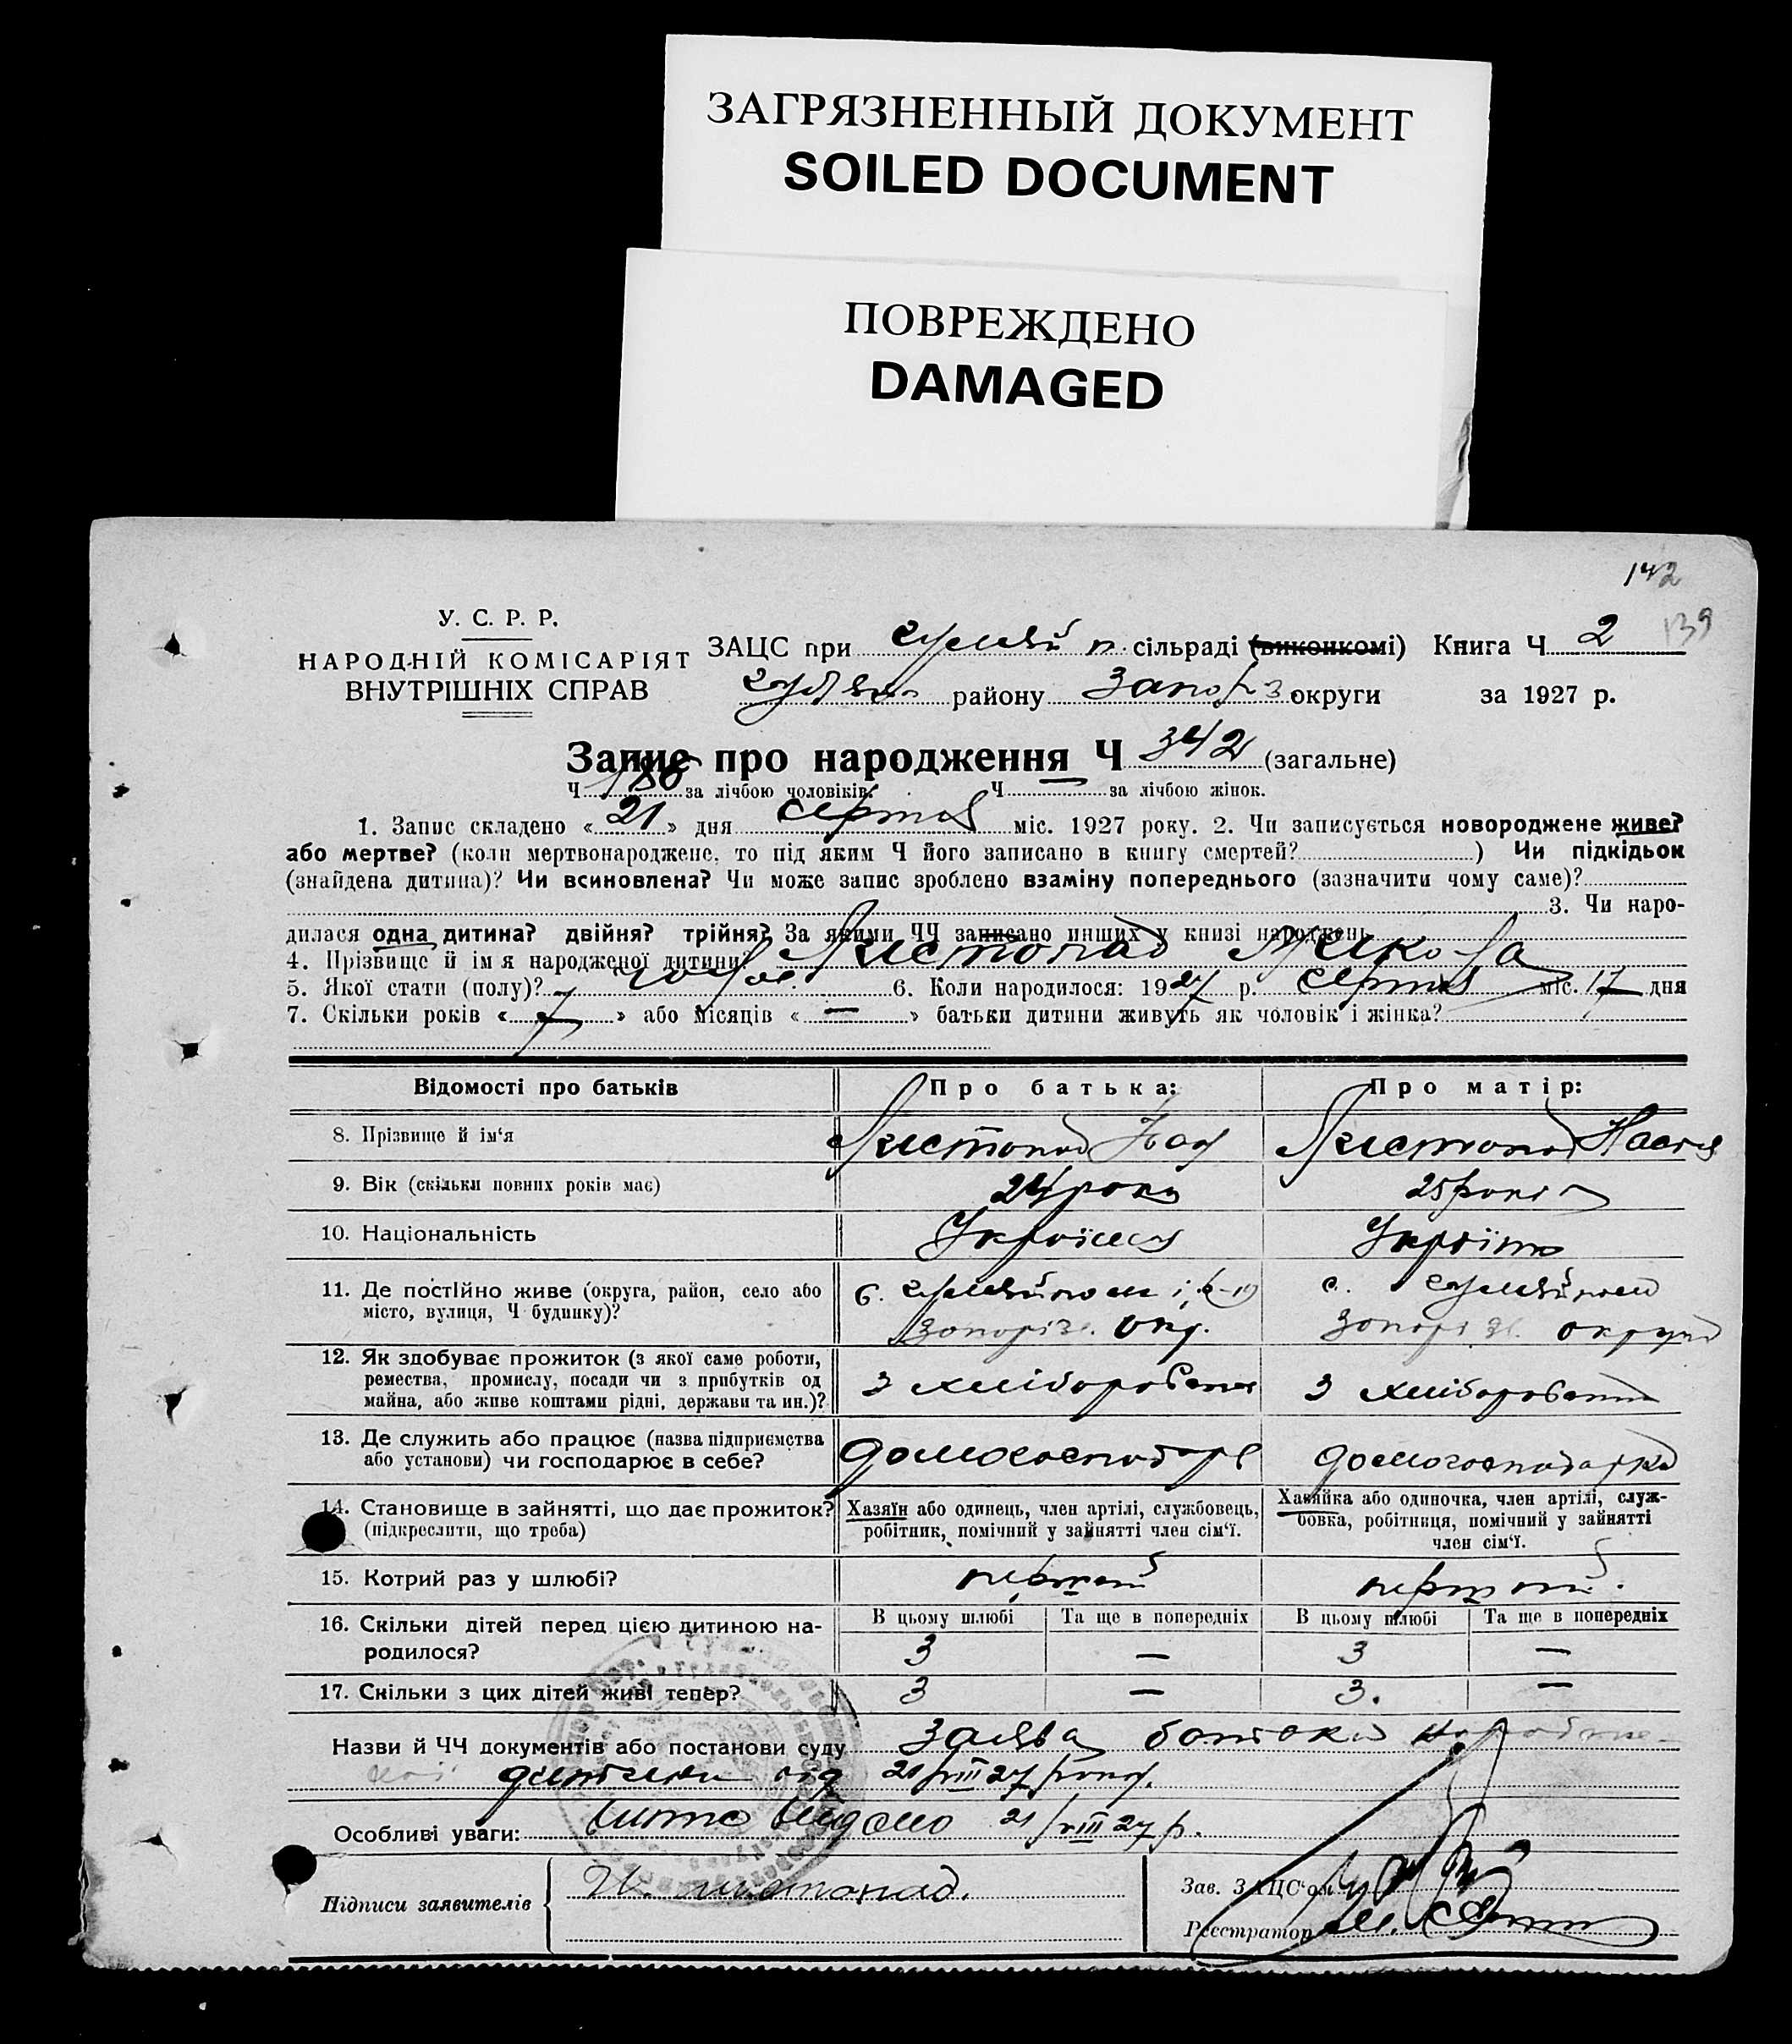 ЗАГРЯЗНЕННЫЙ ДОКУМЕНТ
SOILED DOCUMENT
ПОВРЕЖДЕНО
DAMAGED
142
139
У. С. Р. Р.
НАРОДНІЙ КОМІСАРІЯТ
ВНУТРІШНІХ СПРАВ
ЗАЦС при сільраді (виконкомі) Книга Ч 2
району Запоріз округи за 1927 р.
Запис про народження Ч 342 (загальне)
Ч 186 за лічбою чоловіків. Ч — за лічбою жінок.
1. Запис складено « 21 » дня серпня міс. 1927 року. 2. Чи записується новороджене живе?
або мертве? (коли мертвонароджене, то під яким Ч його записано в книгу смертей? ) Чи підкідьок
(знайдена дитина)? Чи всиновлена? Чи може запис зроблено взаміну попереднього (зазначити чому саме)?
3. Чи наро-
дилася одна дитина? двійня? трійня? За якими ЧЧ записано инших у книзі народжень
4. Прізвище й ім'я народженої дитини? Листопад Микола
5. Якої стати (полу)? 6. Коли народилося: 1927 р. серпня міс. 17 дня
7. Скільки років « 7 » або місяців « — » батьки дитини живуть як чоловік і жінка?
Відомості про батьків Про батька: Про матір:
8. Прізвище й ім'я Листопад Іван Листопад Настя
9. Вік (скільки повних років має) 24 роки 25 років
10. Національність Українець Українка
11. Де постійно живе (округа, район, село або с. с.
місто, вулиця, Ч будинку)? Запоріз. окр. Запоріз. округи
12. Як здобуває прожиток (з якої саме роботи,
ремества, промислу, посади чи з прибутків од З хліборобства З хліборобства
майна, або живе коштами рідні, держави та ин.)?
13. Де служить або працює (назва підприємства домогосподарь домогосподарка
або установи) чи господарює в себе?
14. Становище в зайнятті, що дає прожиток? Хазяїн або одинець, член артілі, службовець, Хазяйка або одиночка, член артілі, служ-
(підкреслити, що треба) робітник, помічний у зайнятті член сім'ї. бовка, робітниця, помічний у зайнятті
член сім'ї.
15. Котрий раз у шлюбі? перший перший.
16. Скільки дітей перед цією дитиною на- В цьому шлюбі Та ще в попередніх В цьому шлюбі Та ще в попередніх
родилося? 3 — 3 —
17. Скільки з цих дітей живі тепер? 3 — 3. —
Назви й ЧЧ документів або постанови суду Заява батька народже-
ної дитини від 21/VIII 27 року.
Особливі уваги: видано 21/VIII 27 р.
Підписи заявителів И. листопад.
Зав. ЗАЦС'ом
Реєстратор